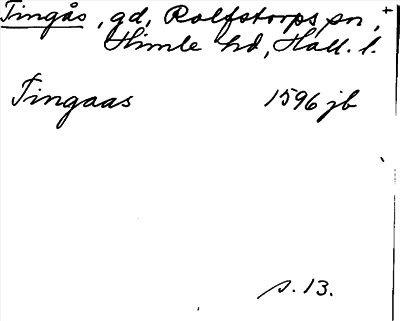 Tingås, gd, Rolfstorps sn, +
Himle hd, Hall. l.
Tingaas 1596 jb
s. 13.